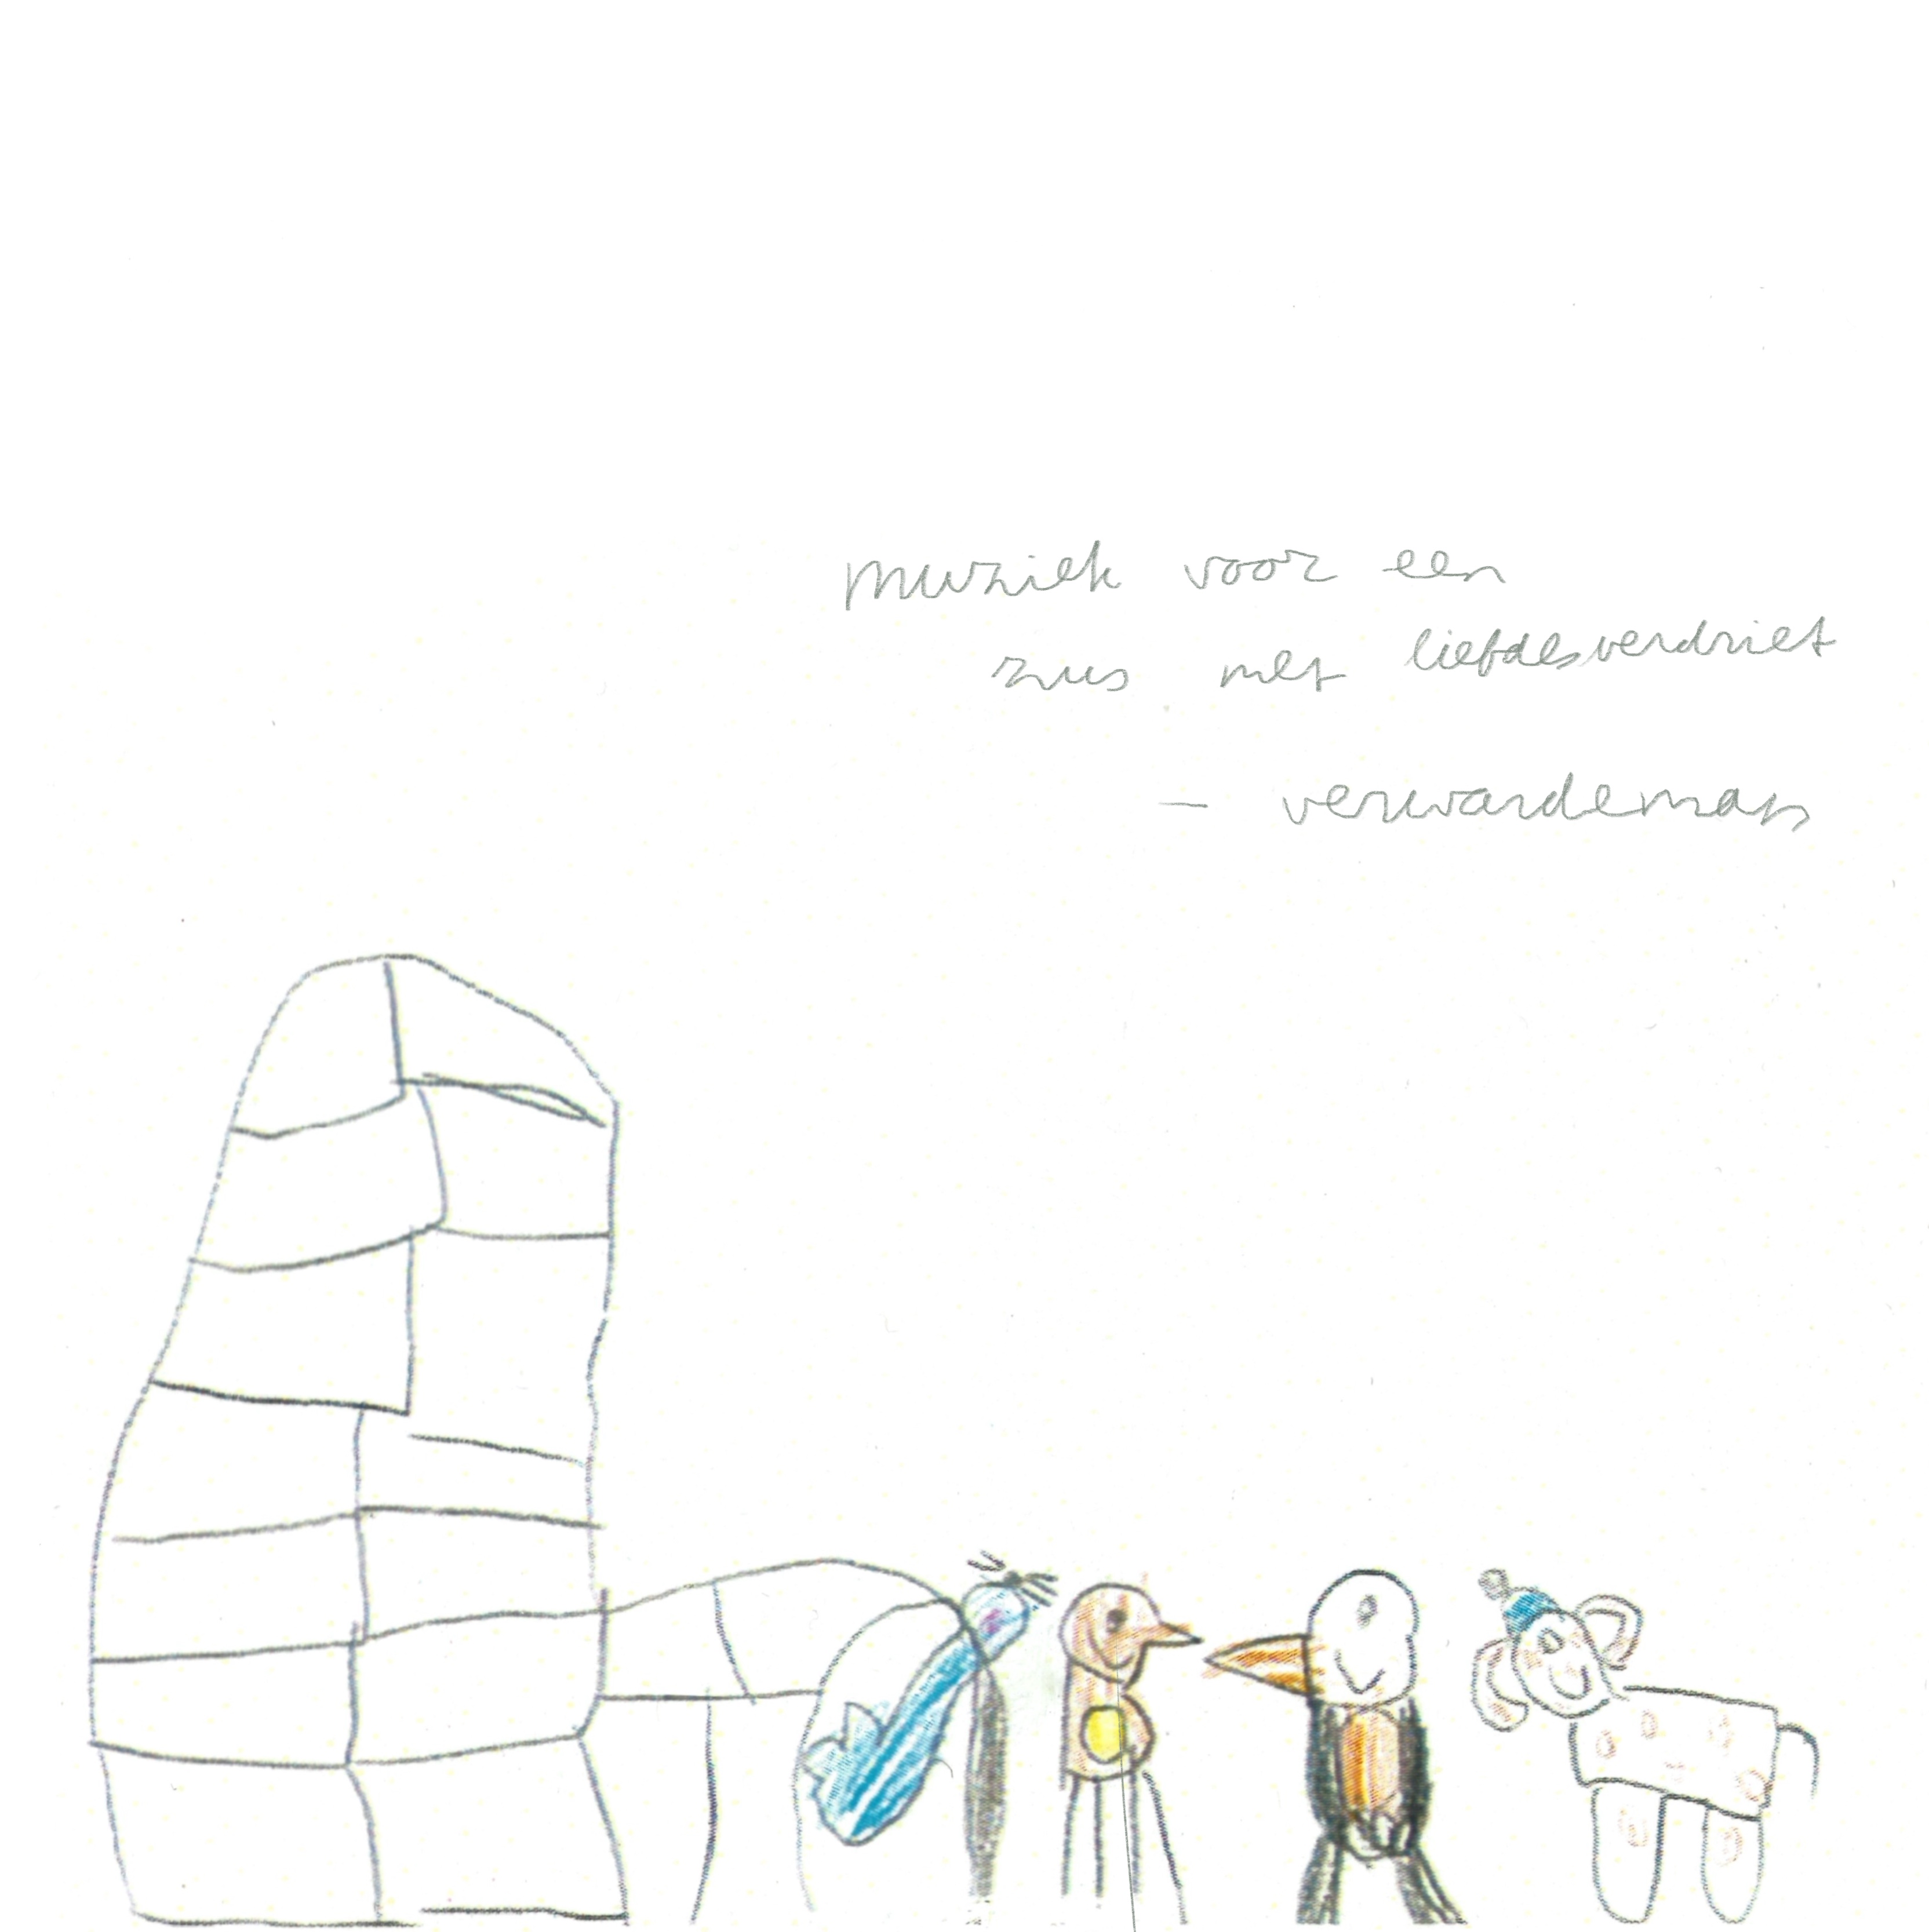 muziek voor een
zus met liefdesverdriet
- verwardeman